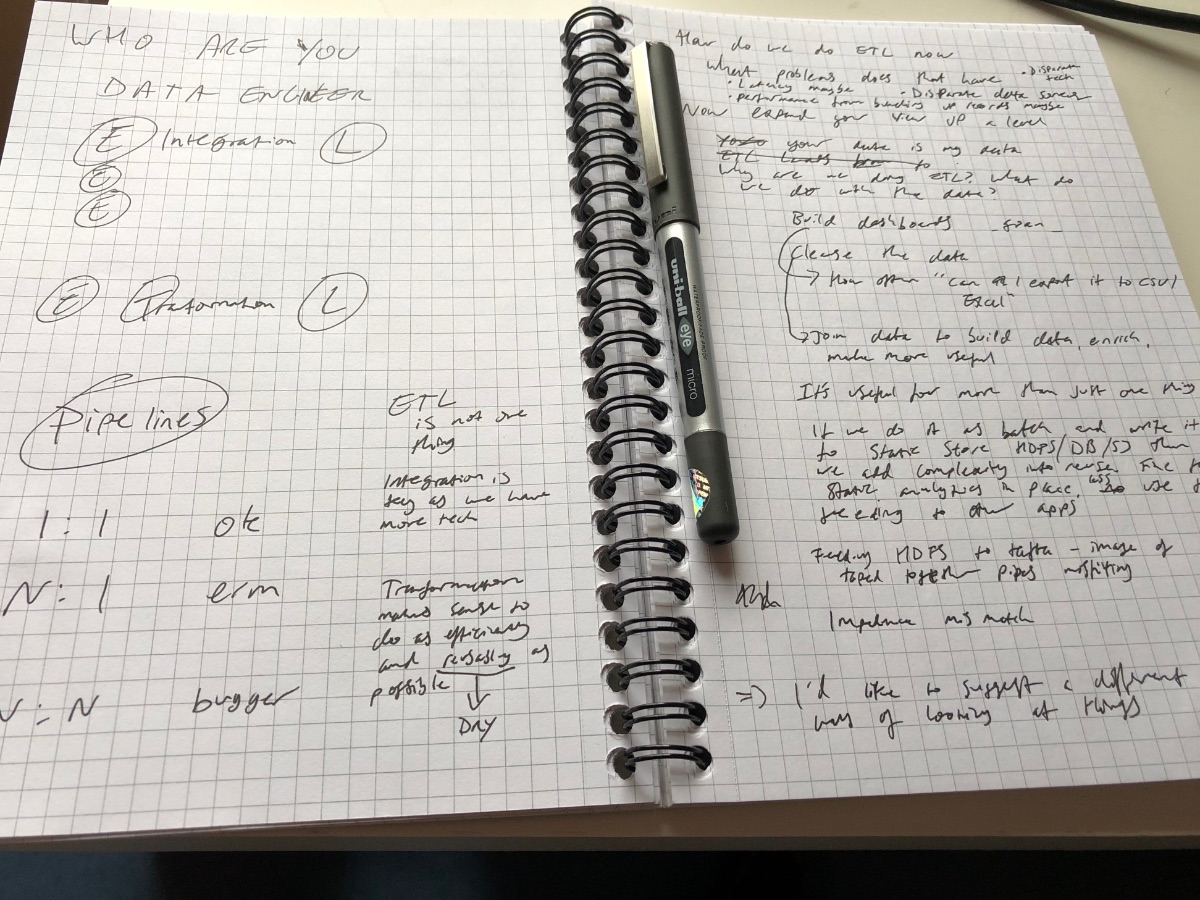 WHO ARE YOU
DATA ENGINEER
E Integration L
E
E
E Transformation L
Pipelines
1:1 ok
N:1 erm
N:N bugger
ETL
is not one
thing
Integration is
key as we have
more tech
Transformation
makes sense to
do as efficiently
and reusably as
possible
DRY
uni-ball eye
micro
How do we do ETL now
What problems does that have
• Disparate
tech
• Latency maybe • Disparate data sources
• performance from bunching up records maybe
Now expand your view up a level
your data is my data
ETL
Why are we doing ETL? What do
we do with the data?
Build dashboards
Cleanse the data
→ How often "can I export it to CSV/
Excel"
→ Join data to build data, enrich,
make more useful
It's useful for more than just one thing
If we do it as batch and write it
to Static Store HDFS/DB/S3 then
we add complexity into reuse. Fine for
static analytics in place, less use for
feeding to other apps
Feeding HDFS to Kafka – image of
taped together pipes misfitting
Impedance mismatch
=> I'd like to suggest a different
way of looking at things